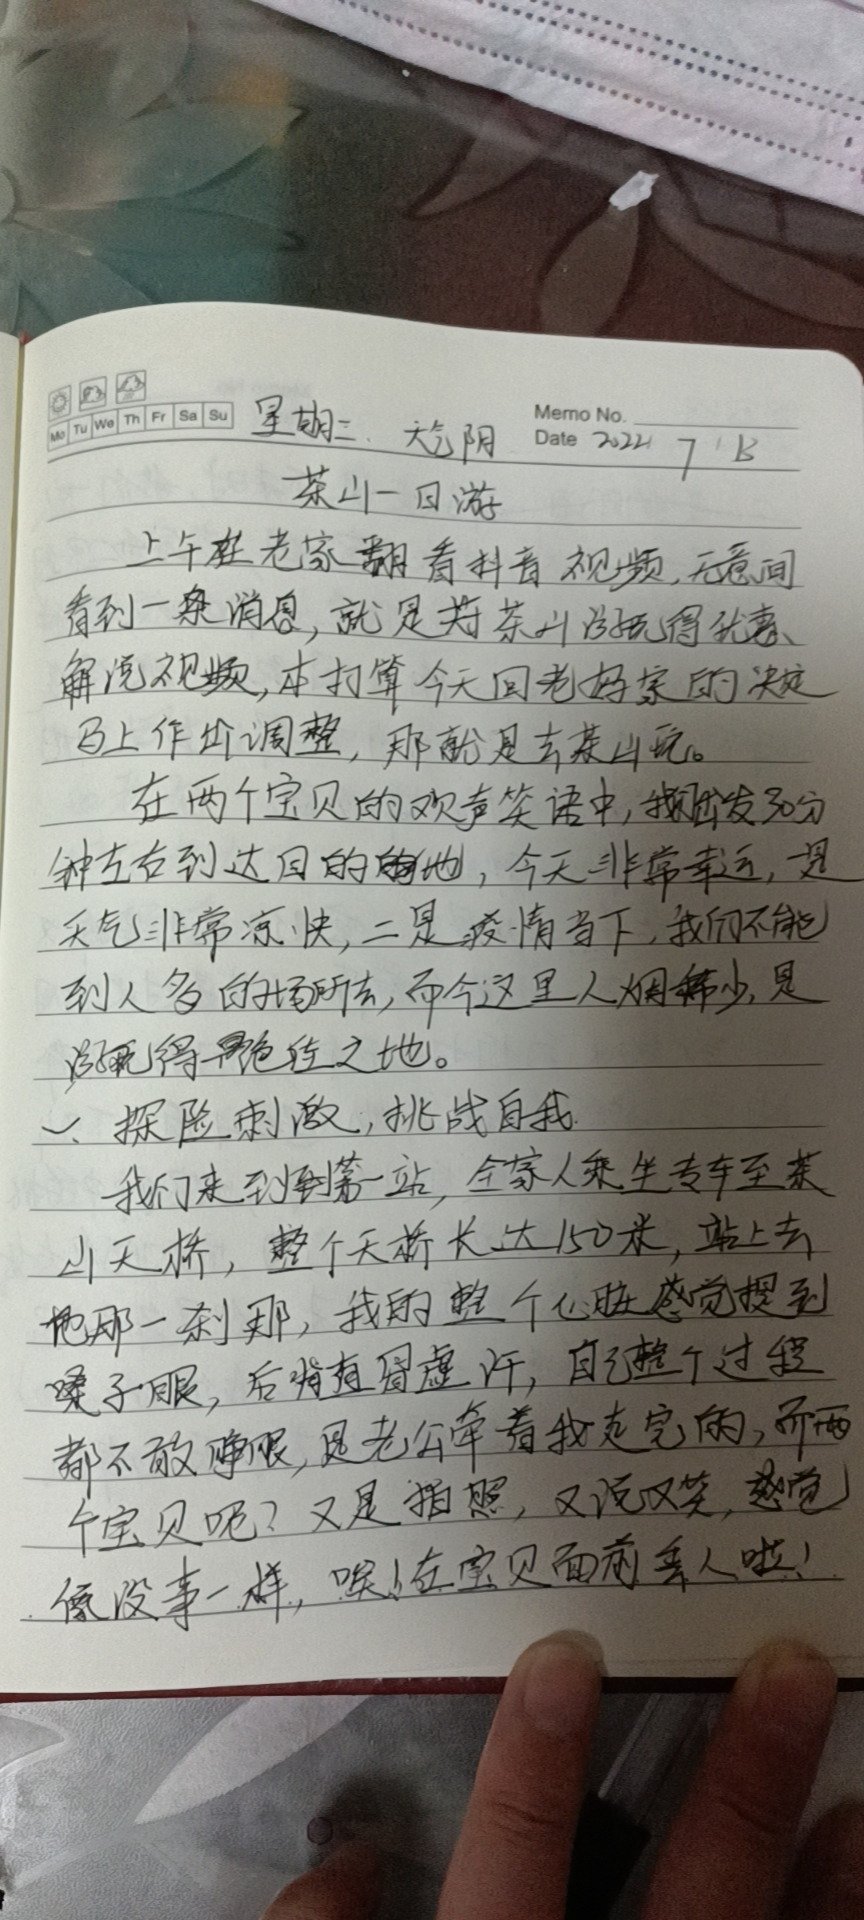 Mo Tu We Th Fr Sa Su
星期三. 天气阴
Memo No.
Date 2022 7 13
茶山一日游
上午在老家翻看抖音视频,无意间
看到一条消息,就是茶山游玩得优惠、
解说视频,本打算今天回老妈家的决定
马上作出调整,那就是去茶山玩。
在两个宝贝的欢声笑语中,我们出发30分
钟左右到达目的地,今天非常幸运,一是
天气非常凉快,二是疫情当下,我们不能
到人多的场所去,而今这里人烟稀少,是
游玩得绝佳之地。
一、探险刺激,挑战自我.
我们来到第一站,全家人乘坐专车至茶
山天桥,整个天桥长达150米,站上去
地那一刹那,我的整个心脏感觉提到
嗓子眼,后背直冒虚汗,自己整个过程
都不敢睁眼,是老公牵着我走完的,而两
个宝贝呢?又是拍照,又说又笑,感觉
像没事一样,唉!在宝贝面前丢人啦!